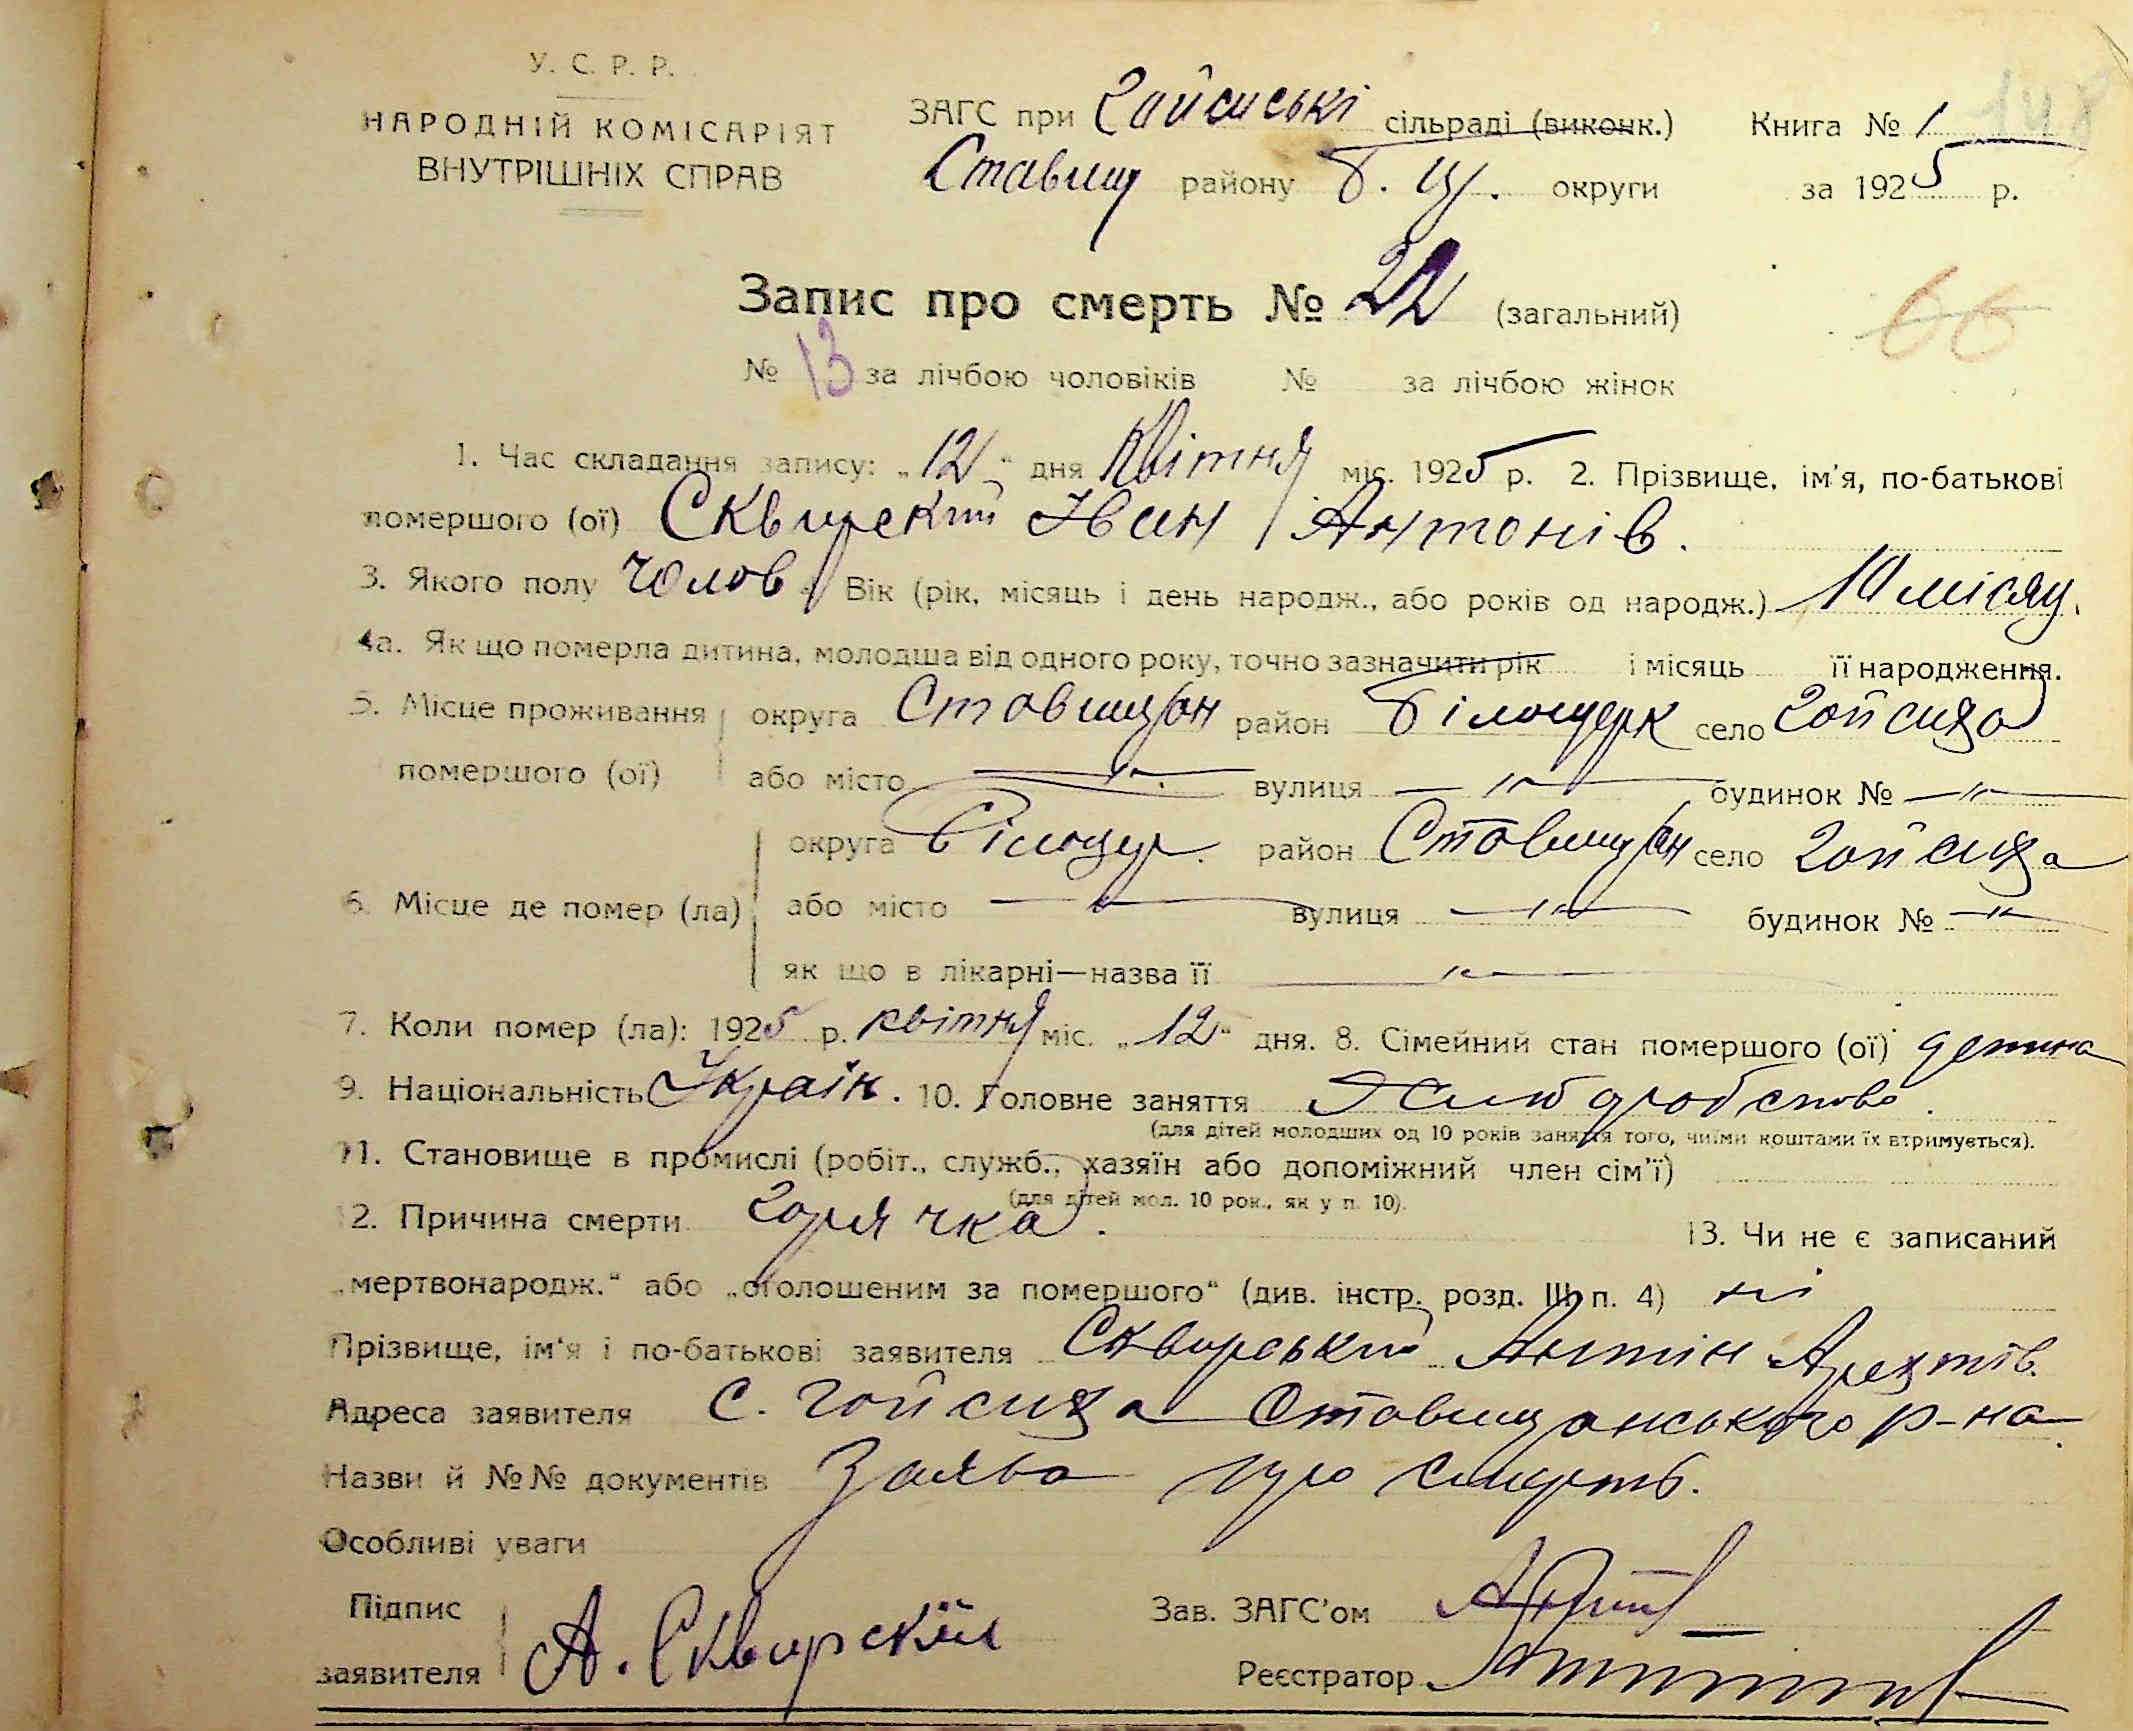 У. С. Р. Р.
НАРОДНІЙ КОМІСАРІЯТ
ВНУТРІШНІХ СПРАВ
ЗАГС при сільраді (виконк.) Книга № 1 148
Ставищ району Б. Ц. округи за 1925 р.
Запис про смерть № 22 (загальний)
66
№ 13 за лічбою чоловіків № за лічбою жінок
1. Час складання запису: „12“ дня Квітня міс. 1925 р. 2. Прізвище, ім'я, по-батькові
помершого (ої) Сквирский Іван Антонів.
3. Якого полу Чолов Вік (рік, місяць і день народж., або років од народж.) 10 місяц.
4а. Як що померла дитина, молодша від одного року, точно зазначити рік і місяць її народження.
5. Місце проживання округа Ставищан район Білоцерк село Гойсиха
помершого (ої) або місто — " — вулиця — " — будинок № — " —
округа Білоцер. район Ставищан село Гойсиха
6. Місце де помер (ла) або місто — " — вулиця — " — будинок № — " —
як що в лікарні—назва її — " —
7. Коли помер (ла): 1925 р. квітня міс. „12“ дня. 8. Сімейний стан помершого (ої) детина
9. Національність Україн. 10. Головне заняття
(для дітей молодших од 10 років заняття того, чиїми коштами їх втримується).
11. Становище в промислі (робіт., служб., хазяїн або допоміжний член сім'ї)
(для дітей мол. 10 рок., як у п. 10).
12. Причина смерти горячка. 13. Чи не є записаний
„мертвонародж.“ або „оголошеним за помершого“ (див. інстр. розд. III п. 4) ні
Прізвище, ім'я і по-батькові заявителя Сквирський Антін
Адреса заявителя с. Гойсиха Ставищанського р-на
Назви й №№ документів Заява про смерть.
Особливі уваги
Підпис
заявителя А. Сквирский
Зав. ЗАГС'ом
Реєстратор